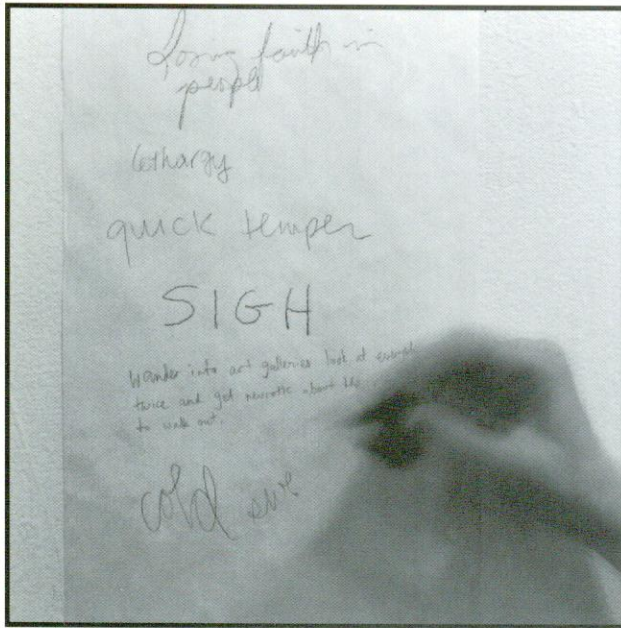 Losing faith in
people
lethargy
quick temper
SIGH
Wander into art galleries look at
twice and get neurotic about
to walk out.
cold sore